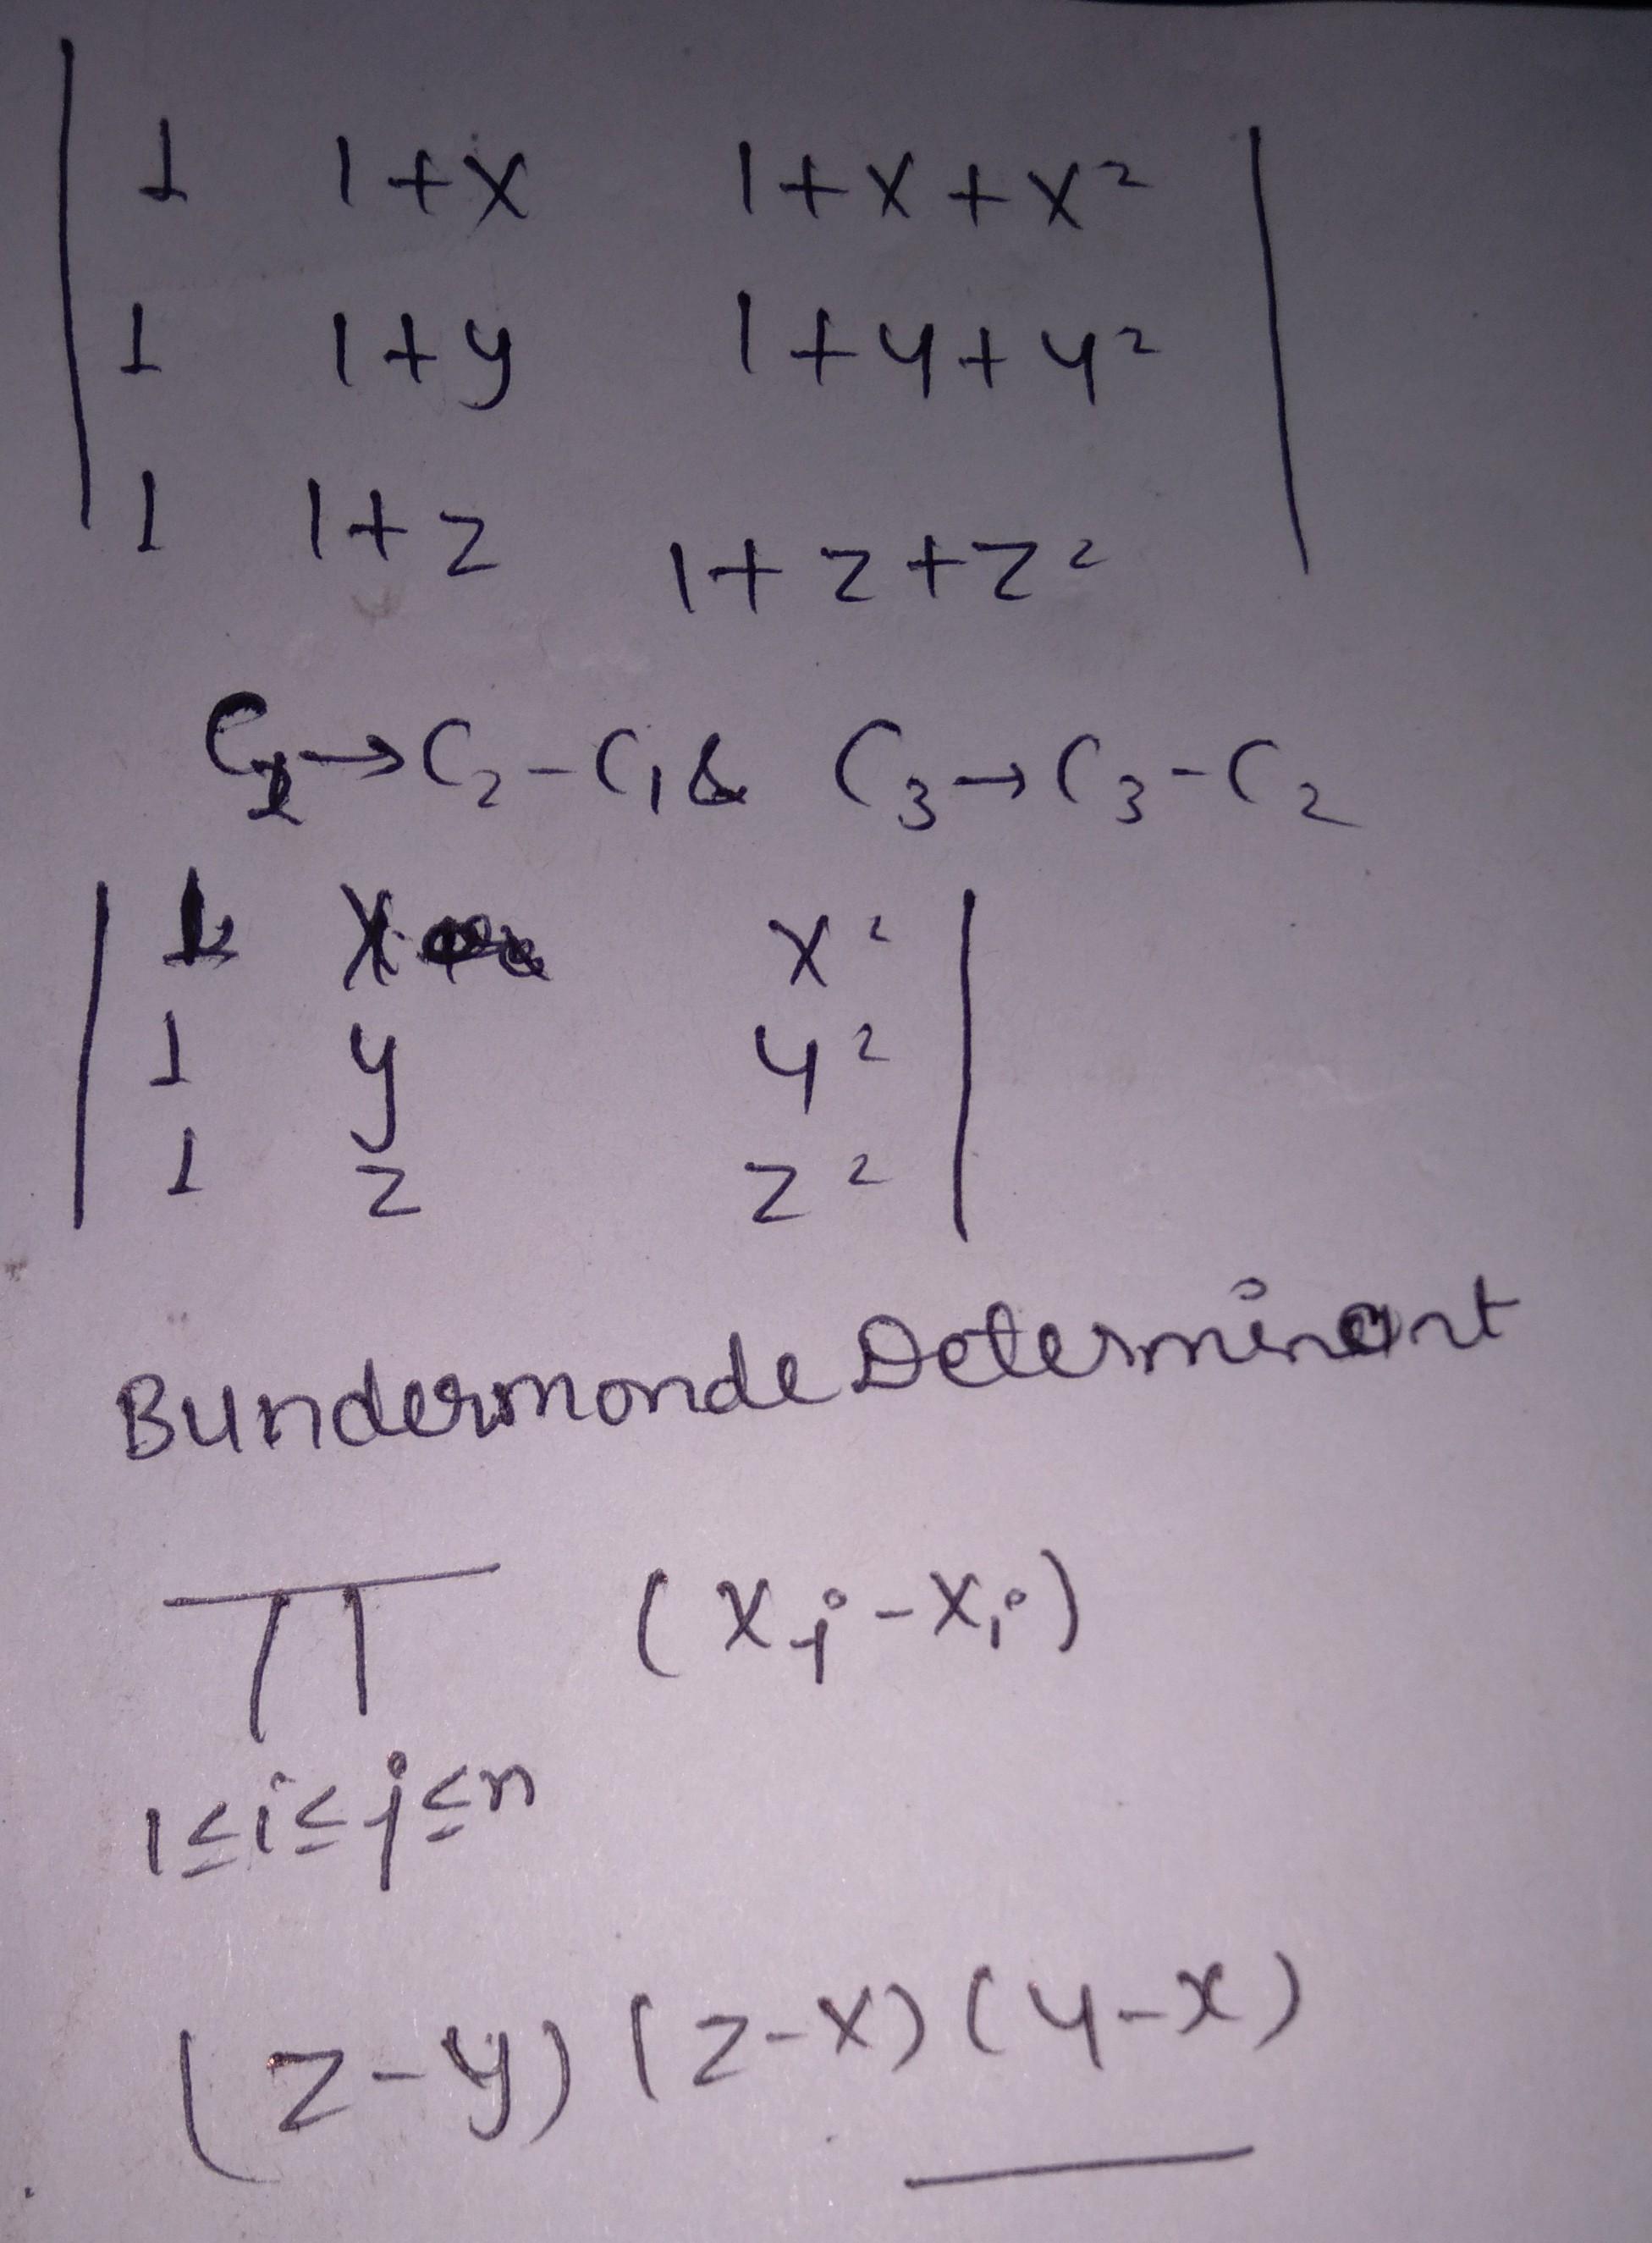 | 1 1+x 1+x+x² |
| 1 1+y 1+y+y² |
| 1 1+z 1+z+z² |
C₂→C₂-C₁& C₃→C₃-C₂
| 1 x x² |
| 1 y y² |
| 1 z z² |
Bundermonde Determinant
∏ (xⱼ-xᵢ)
1≤i≤j≤n
(z-y)(z-x)(y-x)